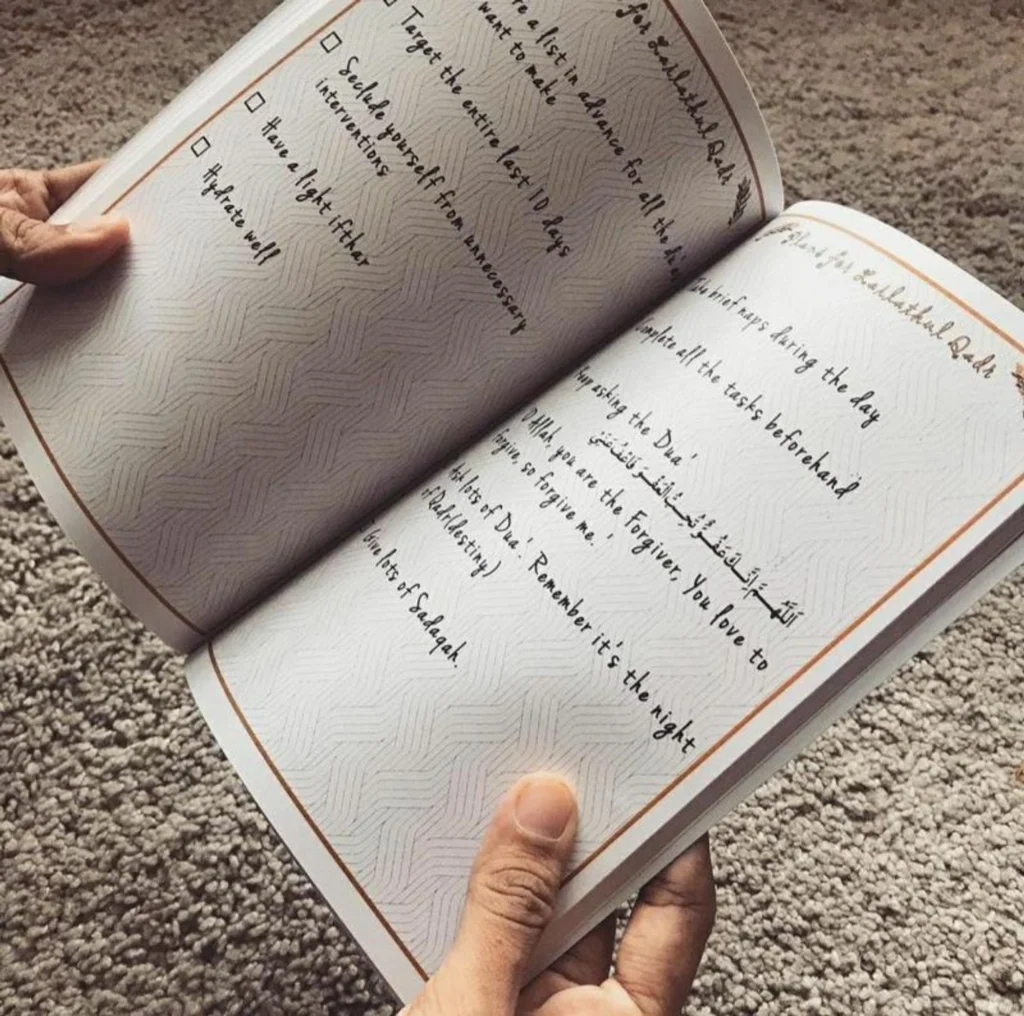 for Lailathul Qadr
a list in advance for all the
want to make
Target the entire last 10 days
Seclude yourself from unnecessary
interventions
Have a light ifthar
Hydrate well
for Lailathul Qadr
brief naps during the day
all the tasks beforehand
asking the Dua'
اَللّٰهُمَّ إِنَّكَ عَفُوٌّ تُحِبُّ الْعَفْوَ فَاعْفُ عَنِّي
O Allah, you are the Forgiver, You love to
forgive, so forgive me.'
Ask lots of Dua'. Remember it's the night
of Qadr(destiny)
Give lots of Sadaqah.